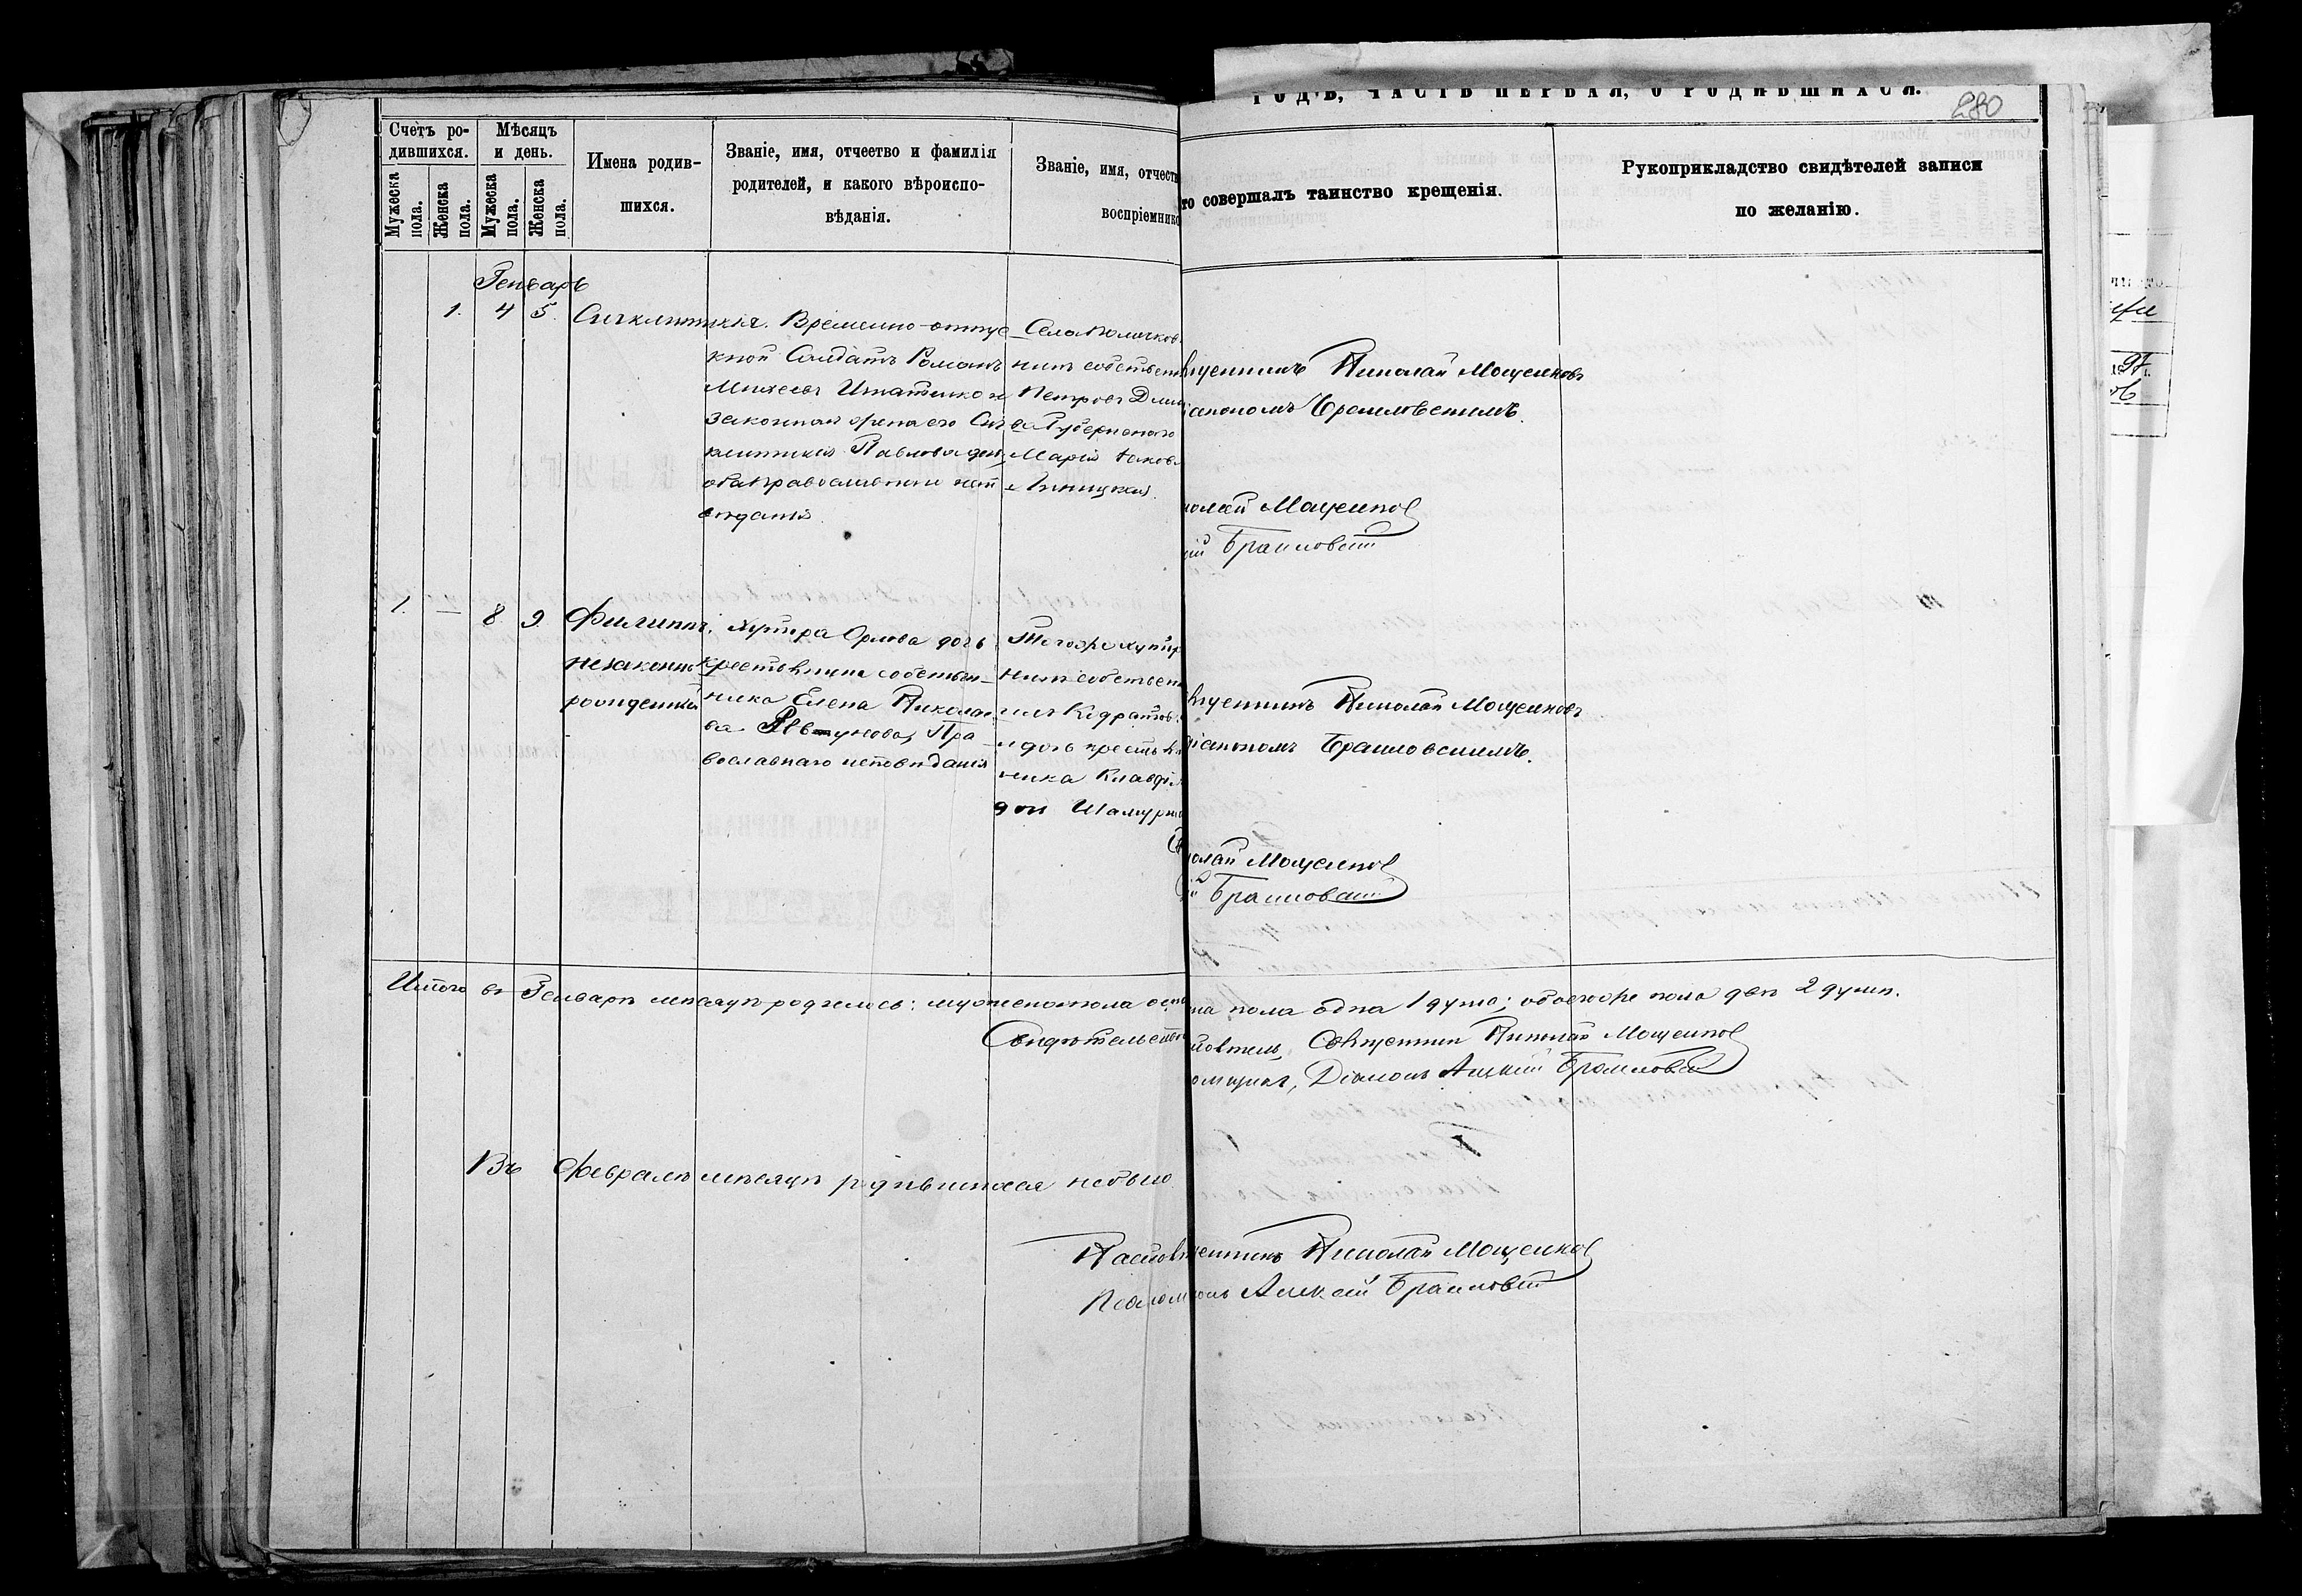 ГОДЪ, ЧАСТЬ ПЕРВАЯ, О РОДИВШИХСЯ.
280
Счетъ ро-
дившихся.
Мужеска пола.
Женска пола.
Мѣсяцъ
и день.
Мужеска пола.
Женска пола.
Имена родив-
шихся.
Званіе, имя, отчество и фамилія
родителей, и какого вѣроиспо-
вѣданія.
Званіе, имя, отчест
воспріемнико
то совершалъ таинство крещенія.
Рукоприкладство свидѣтелей записи
по желанію.
Генварь
1. 4 5.
Сигклитикія.
Временно-отпус
кной Солдатъ Романъ
Михеевъ Игнатенко и
законная жена его Сиг
клитикія Павлова доч,
оба православнаго исп
вѣданія.
Села
нинъ собствен
Петровъ Дми
ва Губернскаго
Марія Яковл
Линицкая.
Николай Мощенковъ
іакономъ Браиловскимъ.
колай Мощенков
ій Браиловскій
1. — 8 9.
Филиппъ,
незаконно
рожденный
Хутора Орлова дочь
крестьянина собствен-
ника Елена Николае
ва Явтунова, Пра
вославнаго исповѣданія
Тогоже хутор
нинъ собствен
и дочь крестьян
ника Клавдія
дои Шамури
щенникъ Николай Мощенковъ
діакономъ Браиловскимъ.
олай Мощенков
й Браиловскій
Итого въ Генварѣ мѣсяцѣ родилось: мужескаго пола од
на пола одна 1 душа; обоегоже пола двѣ 2 души.
Свидѣтельств
Священник Николай Мощенков
Діаконъ Алексій Браиловскій
Въ Февралѣ мѣсяцѣ родившихся небыло
Настоя
щенникъ Николай Мощенков
Псалом
конъ Алексѣй Браиловскій